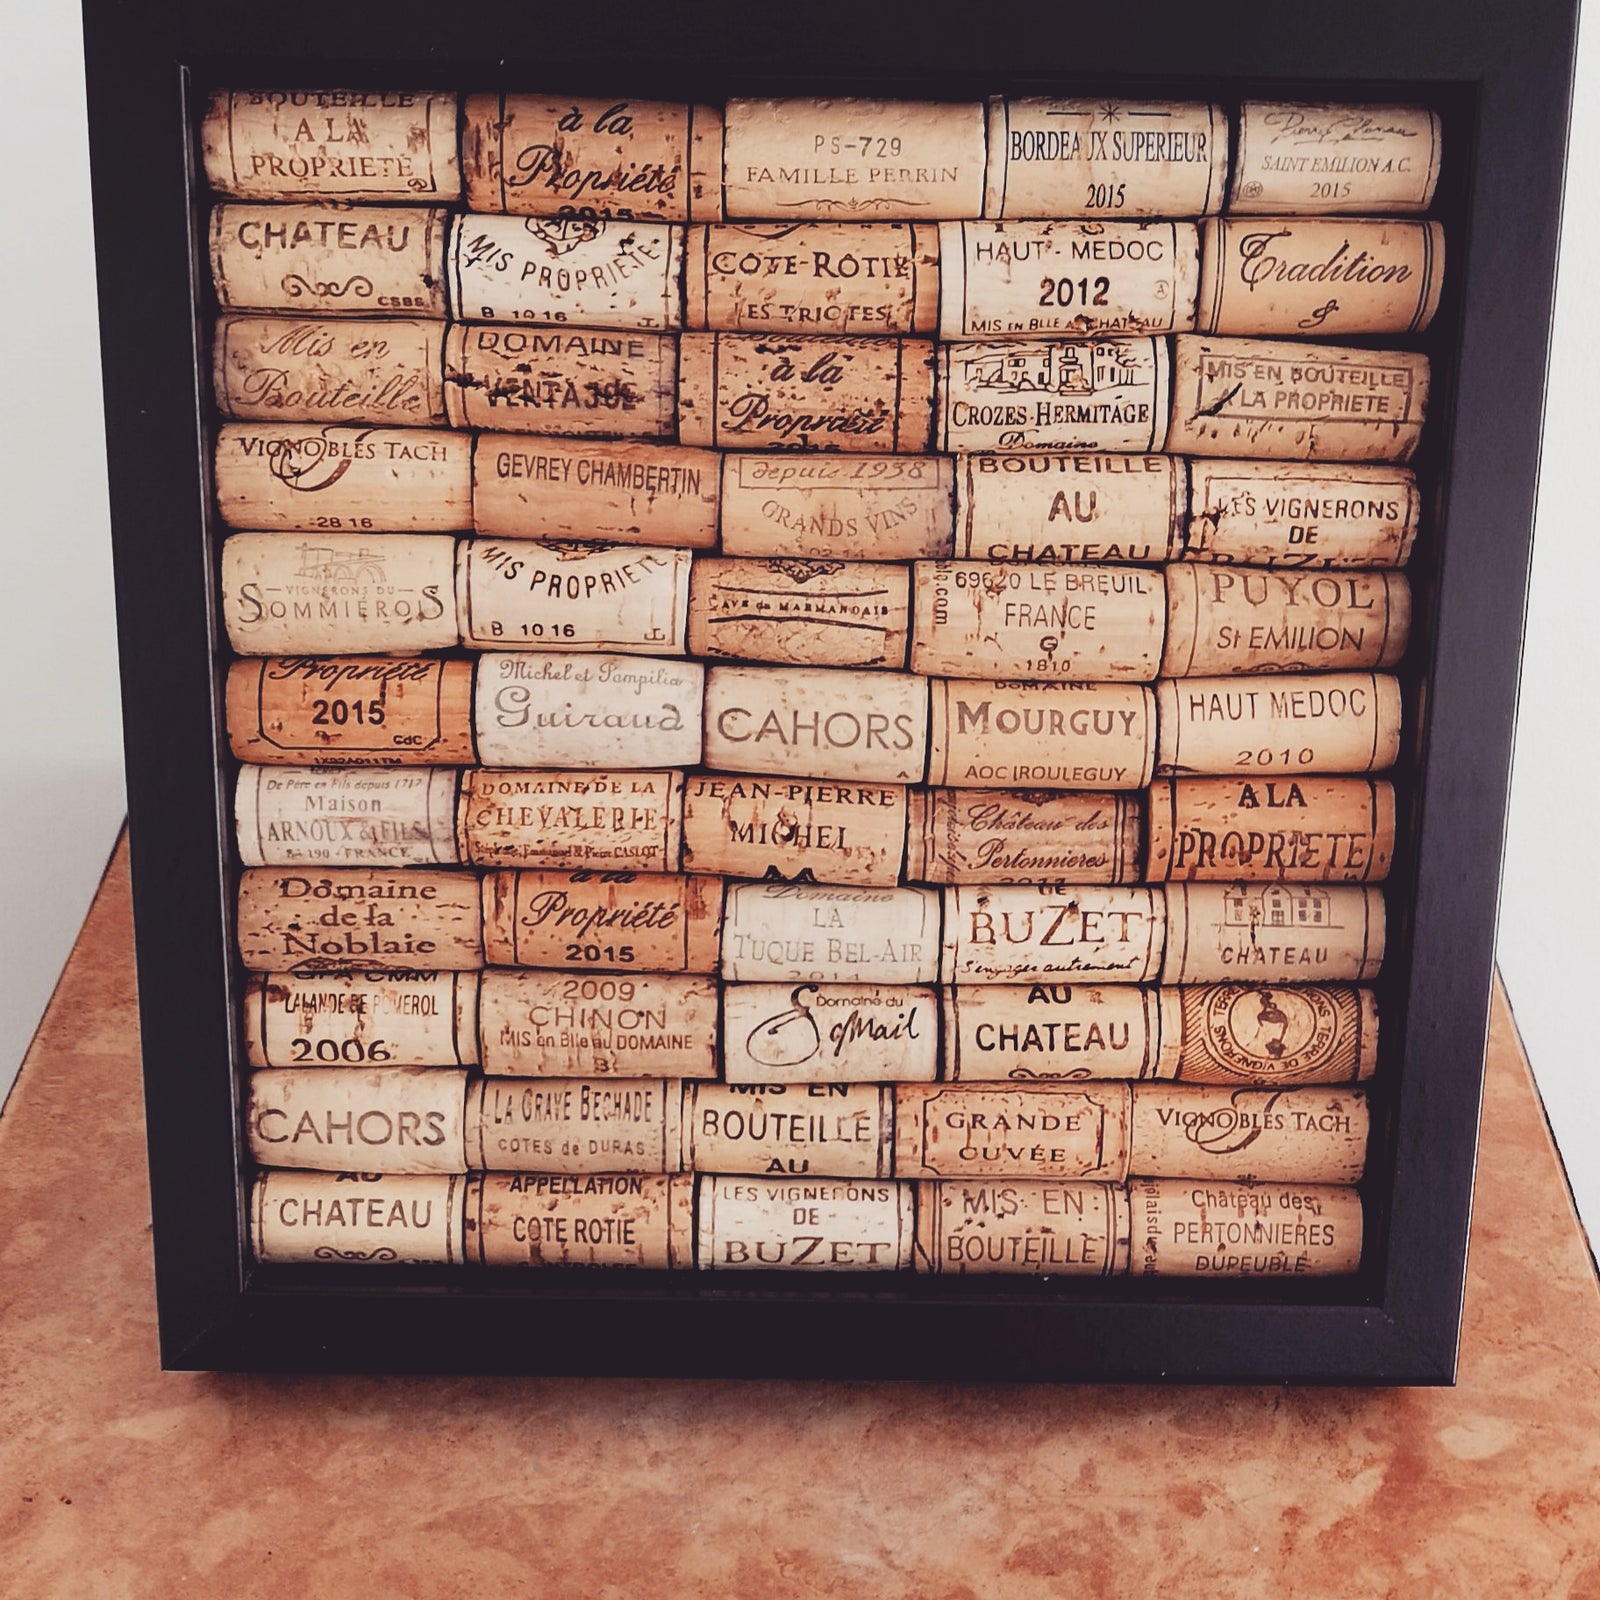 BOUTEILLE
A LA
PROPRIETE
à la
Propriété
2015
PS-729
FAMILLE PERRIN
BORDEAUX SUPERIEUR
2015
SAINT EMILION A.C.
2015
CHATEAU
CSBS
MIS PROPRIETE
B 10 16
CÔTE-RÔTIE
LES TRIOTES
HAUT-MEDOC
2012
MIS EN BLLE AU CHATEAU
Tradition
&
Mis en
Bouteille
DOMAINE
VENTAJOL
à la
Propriété
2015
CROZES-HERMITAGE
Domaine
MIS EN BOUTEILLE
A LA PROPRIETE
VIGNOBLES TACH
28 16
GEVREY CHAMBERTIN
depuis 1938
GRANDS VINS
02 14
BOUTEILLE
AU
CHATEAU
LES VIGNERONS
DE
BUZET
VIGNERONS DU
SOMMIEROIS
MIS PROPRIETE
B 10 16
CAVE de MARMANDAIS
69620 LE BREUIL
FRANCE
G
1810
PUYOL
St EMILION
Propriété
2015
CdC
Michel et Pampilia
Guiraud
CAHORS
DOMAINE
MOURGUY
AOC IROULEGUY
HAUT MEDOC
2010
De Père en Fils depuis 1717
Maison
ARNOUX & FILS
84190 - FRANCE
DOMAINE DE LA
CHEVALERIE
Stéphanie, Emmanuel & Pierre CASLOT
JEAN-PIERRE
MICHEL
Château des
Pertonnieres
A LA
PROPRIETE
Domaine
de la
Noblaie
à la
Propriété
2015
Domaine
LA
TUQUE BEL-AIR
2011
DE
BUZET
S'engager autrement
CHATEAU
LALANDE DE POMEROL
2006
2009
CHINON
MIS en Blle au DOMAINE
Domaine du
AU
CHATEAU
TERRE DE VIGNERONS
CAHORS
LA GRAVE BECHADE
COTES de DURAS
MIS EN
BOUTEILLE
AU
GRANDE
CUVÉE
VIGNOBLES TACH
AU
CHATEAU
APPELLATION
COTE ROTIE
CONTROLEE
LES VIGNERONS
DE
BUZET
MIS EN
BOUTEILLE
Château des
PERTONNIERES
DUPEUBLE